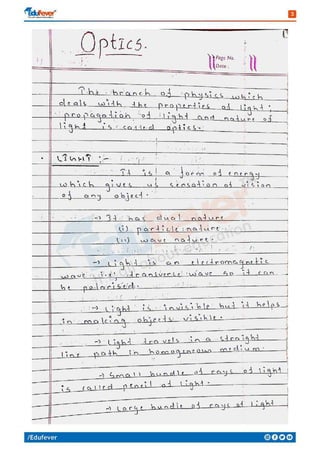 Edufever
3
Optics.
Page No.
Date :
The branch of physics which
deals with the properties of light ;
propagation of light and nature of
light is called optics.
• LIGHT :-
It is a form of energy
which gives us sensation of vision
of any object.
→ It has dual nature
(i) particle nature
(ii) wave nature.
→ Light is an electromagnetic
wave i.e. transverse wave so it can
be polarised.
→ Light is invisible but it helps
in making objects visible.
→ Light travels in a straight
line path in homogeneous medium
→ Small bundle of rays of light
is called pencil of light.
→ Large bundle of rays of light
/Edufever